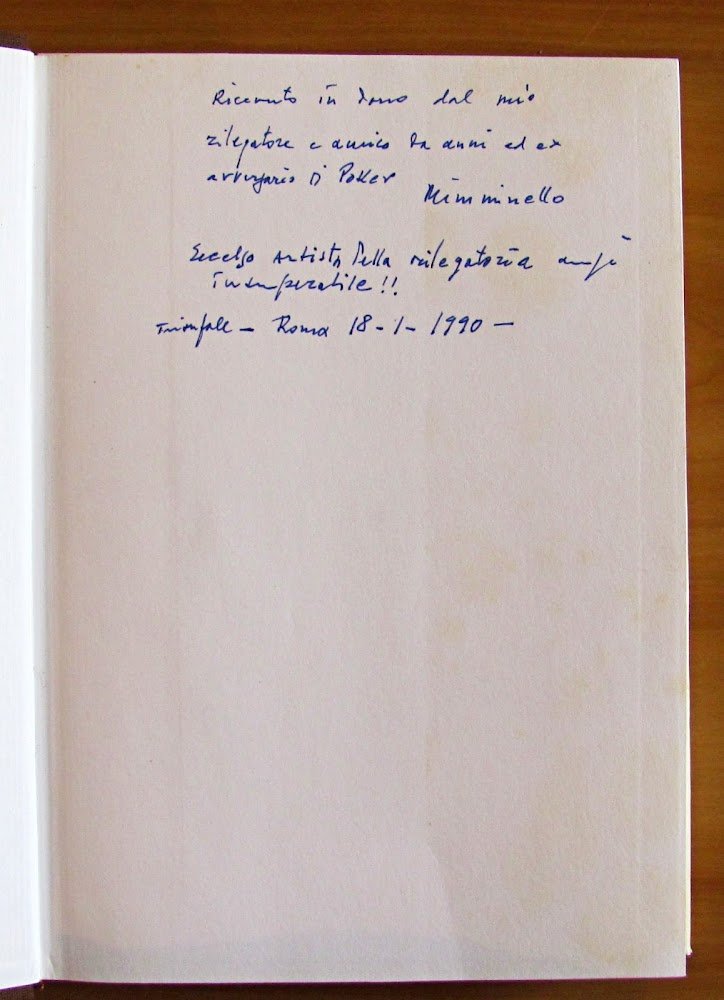 Ricevuto in dono dal mio
rilegatore e amico da anni ed ex
avversario di Poker
Mimminello
Eccelso Artista della rilegatoria anzi
insuperabile!!
Trionfale – Roma 18-1-1990 –